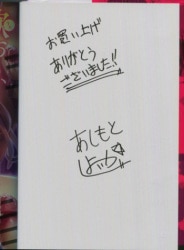 お買い上げ
ありがとう
ございました!!
あしもと